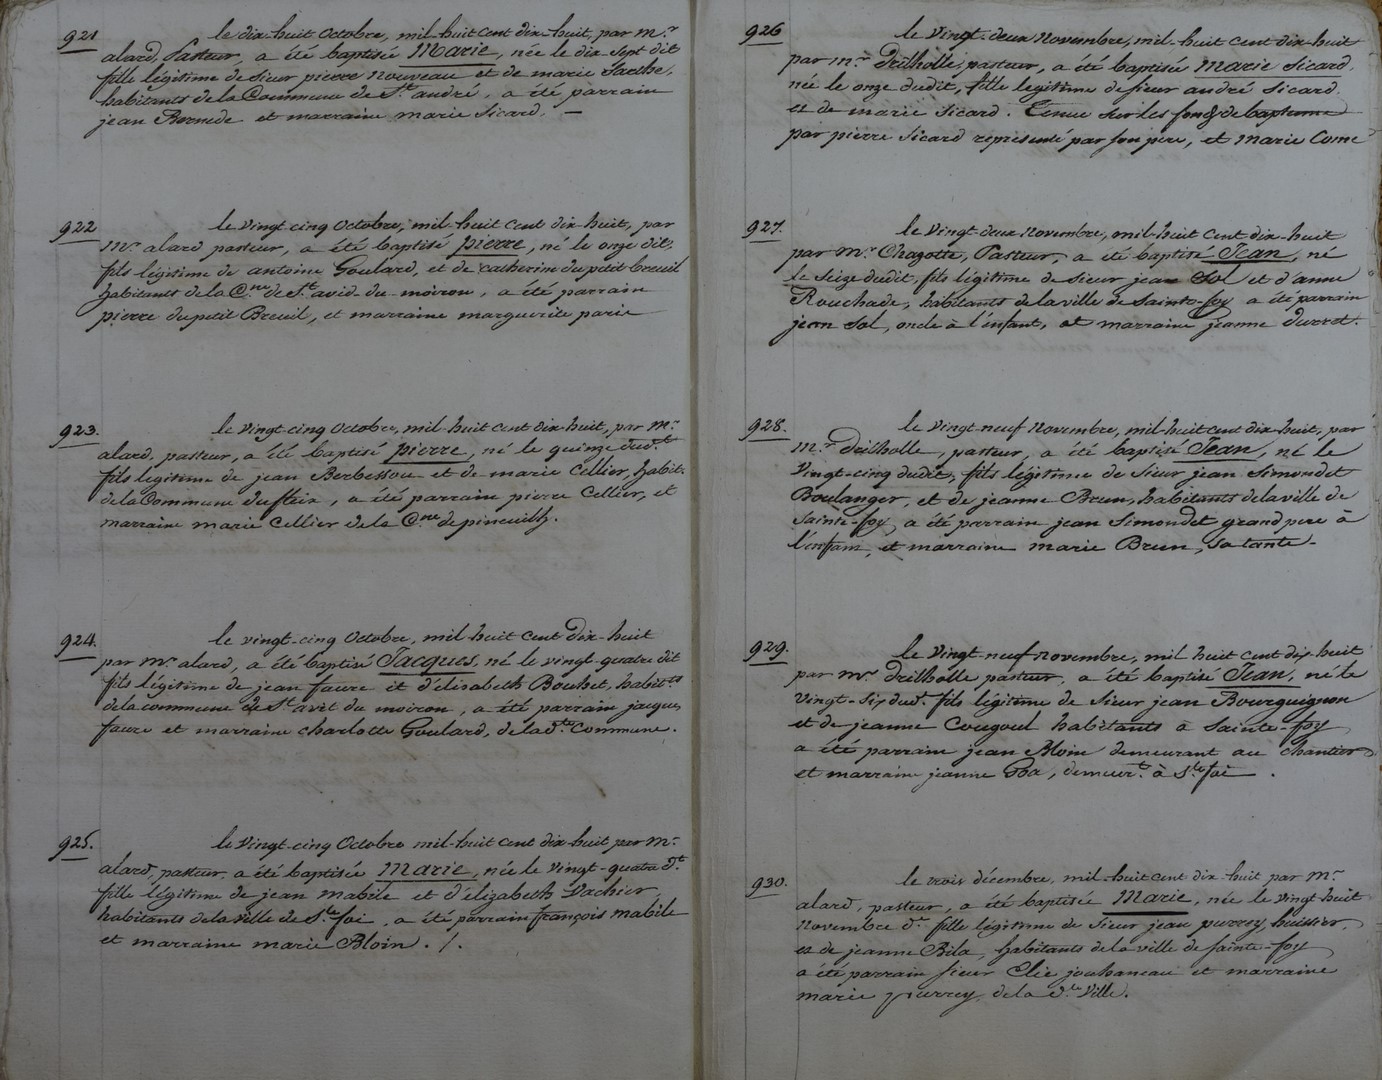 921
le dix-huit Octobre, mil-huit cent dix-huit, par m.r
alard, Pasteur, a été baptisée Marie, née le dix-sept dit
fille légitime de sieur pierre nouveau et de marie
habitants de la Commune de St. andré, a été parrain
jean et marraine marie Sicard.
922
le vingt cinq Octobre, mil-huit cent dix huit, par
m.r alard pasteur, a été baptisé pierre, né le onze dit,
fils légitime de antoine Goulard, et de catherine du petit breuil
habitants de la C.ne de St. avid-du-moiron, a été parrain
pierre dupetit Breuil, et marraine marguerite parie
923.
le vingt-cinq Octobre, mil-huit cent dix-huit, par m.r
alard, pasteur, a été baptisé pierre, né le quinze dud.t
fils legitime de jean Berbessou et de marie Cellier, habit.
de la Commune du fleix, a été parrain pierre Cellier, et
marraine marie Cellier de la C.ne de pineuilh.
924.
le vingt-cinq Octobre, mil-huit cent Dix-huit
par m.r alard, a été baptisé Jacques, né le vingt-quatre dit
fils légitime de jean faure et d'élisabeth Bouhet, habit.ts
de la commune de St. avit du moiron, a été parrain jacques
faure et marraine charlotte Goulard, de la d.te Commune.
925.
le Vingt-cinq Octobre mil-huit cent dix-huit par m.r
alard, pasteur, a été baptisée Marie, née le vingt-quatre d.t
fille légitime de jean mabile et d'élizabeth Vachier,
habitants de la ville de S.te foi, a été parrain françois mabile
et marraine marie Bloin. /.
926
le Vingt-deux novembre, mil-huit cent dix-huit
par m.r Drilholle, pasteur, a été baptisée Marie Sicard,
née le onze dudit, fille legitime de sieur andré Sicard,
et de marie Sicard. Tenue sur les fonds de baptemme
par pierre Sicard representé par son pere, et Marie Come
927.
le Vingt-deux novembre, mil-huit Cent dix-huit
par m.r Chazotte, Pasteur, a été baptisé Jean, né
le Seize dudit, fils légitime de sieur jean Sol et d'anne
Rouchade, habitants de la ville de Sainte-foy a été parrain
jean Sol, oncle à l'enfant, et marraine jeanne durret.
928.
le Vingt-neuf novembre, mil-huit cent dix-huit, par
m.r drilholle, pasteur, a été baptisé Jean, né le
Vingt-cinq dudit, fils légitime de Sieur jean Simondet
Boulanger, et de jeanne Brun, habitants de la ville de
Sainte-foy, a été parrain jean Simondet grand pere à
l'enfant, et marraine marie Brun, sa tante-
929.
le Vingt-neuf novembre, mil huit cent dix-huit
par m.r Drilholle pasteur, a été baptisé Jean, né le
Vingt-Six dud.t fils légitime de Sieur jean Bourguignon
et de jeanne Cougoul habitants à Sainte-foy
a été parrain jean Bloin demeurant au chantier
et marraine jeanne , demeur.t à S.te foi.
930.
le trois décembre, mil-huit cent dix huit par m.r
alard, pasteur, a été baptisée Marie, née le vingt-huit
Novembre d.r fille légitime de Sieur jean purrey, huissier,
et de jeanne Bila, habitants de la ville de sainte-foy
a été parrain sieur Elie jouhaneau et marraine
marie purrey de la d.te Ville.